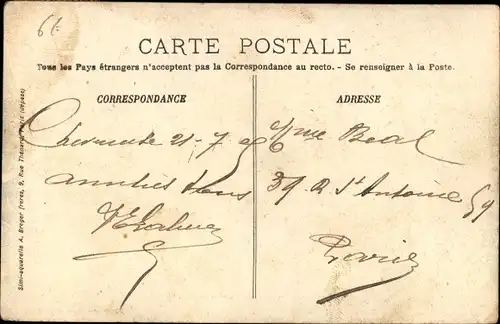 6f.
CARTE POSTALE
Tous les Pays étrangers n'acceptent pas la Correspondance au recto. - Se renseigner à la Poste.
CORRESPONDANCE
21-7-06
amitiés
ADRESSE
Mme Béal
39 R St Antoine 39
Paris
Simi-aquarelle A. Breger frères, 9, Rue Thénard, Paris (déposé)